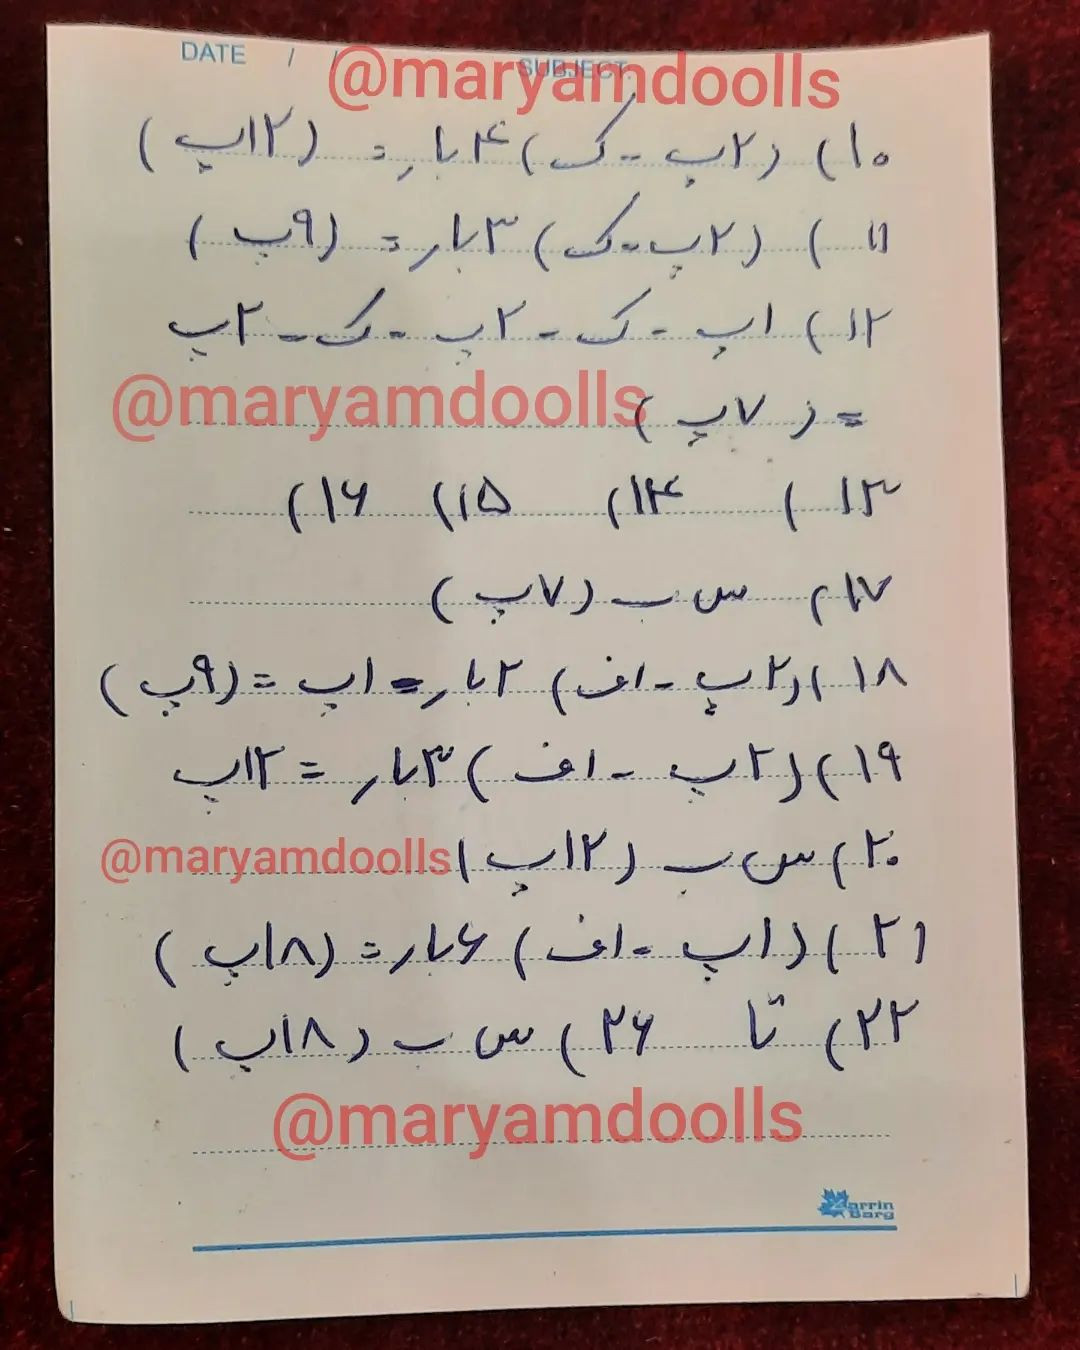 DATE / /
SUBJECT:
@maryamdoolls
۱۰) (۲پ - ک) ۴ بار = (۱۲پ)
۱۱) (۲پ - ک) ۳ بار = (۹پ)
۱۲) ۱پ - ک - ۲پ - ک - ۲پ
@maryamdoolls
= (۷پ)
۱۳) ۱۴) ۱۵) ۱۶)
۱۷) س ب (۷پ)
۱۸) (۲پ - اف) ۲ بار = ۱پ = (۹پ)
۱۹) (۲پ - اف) ۳ بار = ۱۲پ
۲۰) س ب (۱۲پ)
@maryamdoolls
۲۱) (۱پ - اف) ۶ بار = (۱۸پ)
۲۲) تا ۲۶) س ب (۱۸پ)
@maryamdoolls
Zarrin
Barg